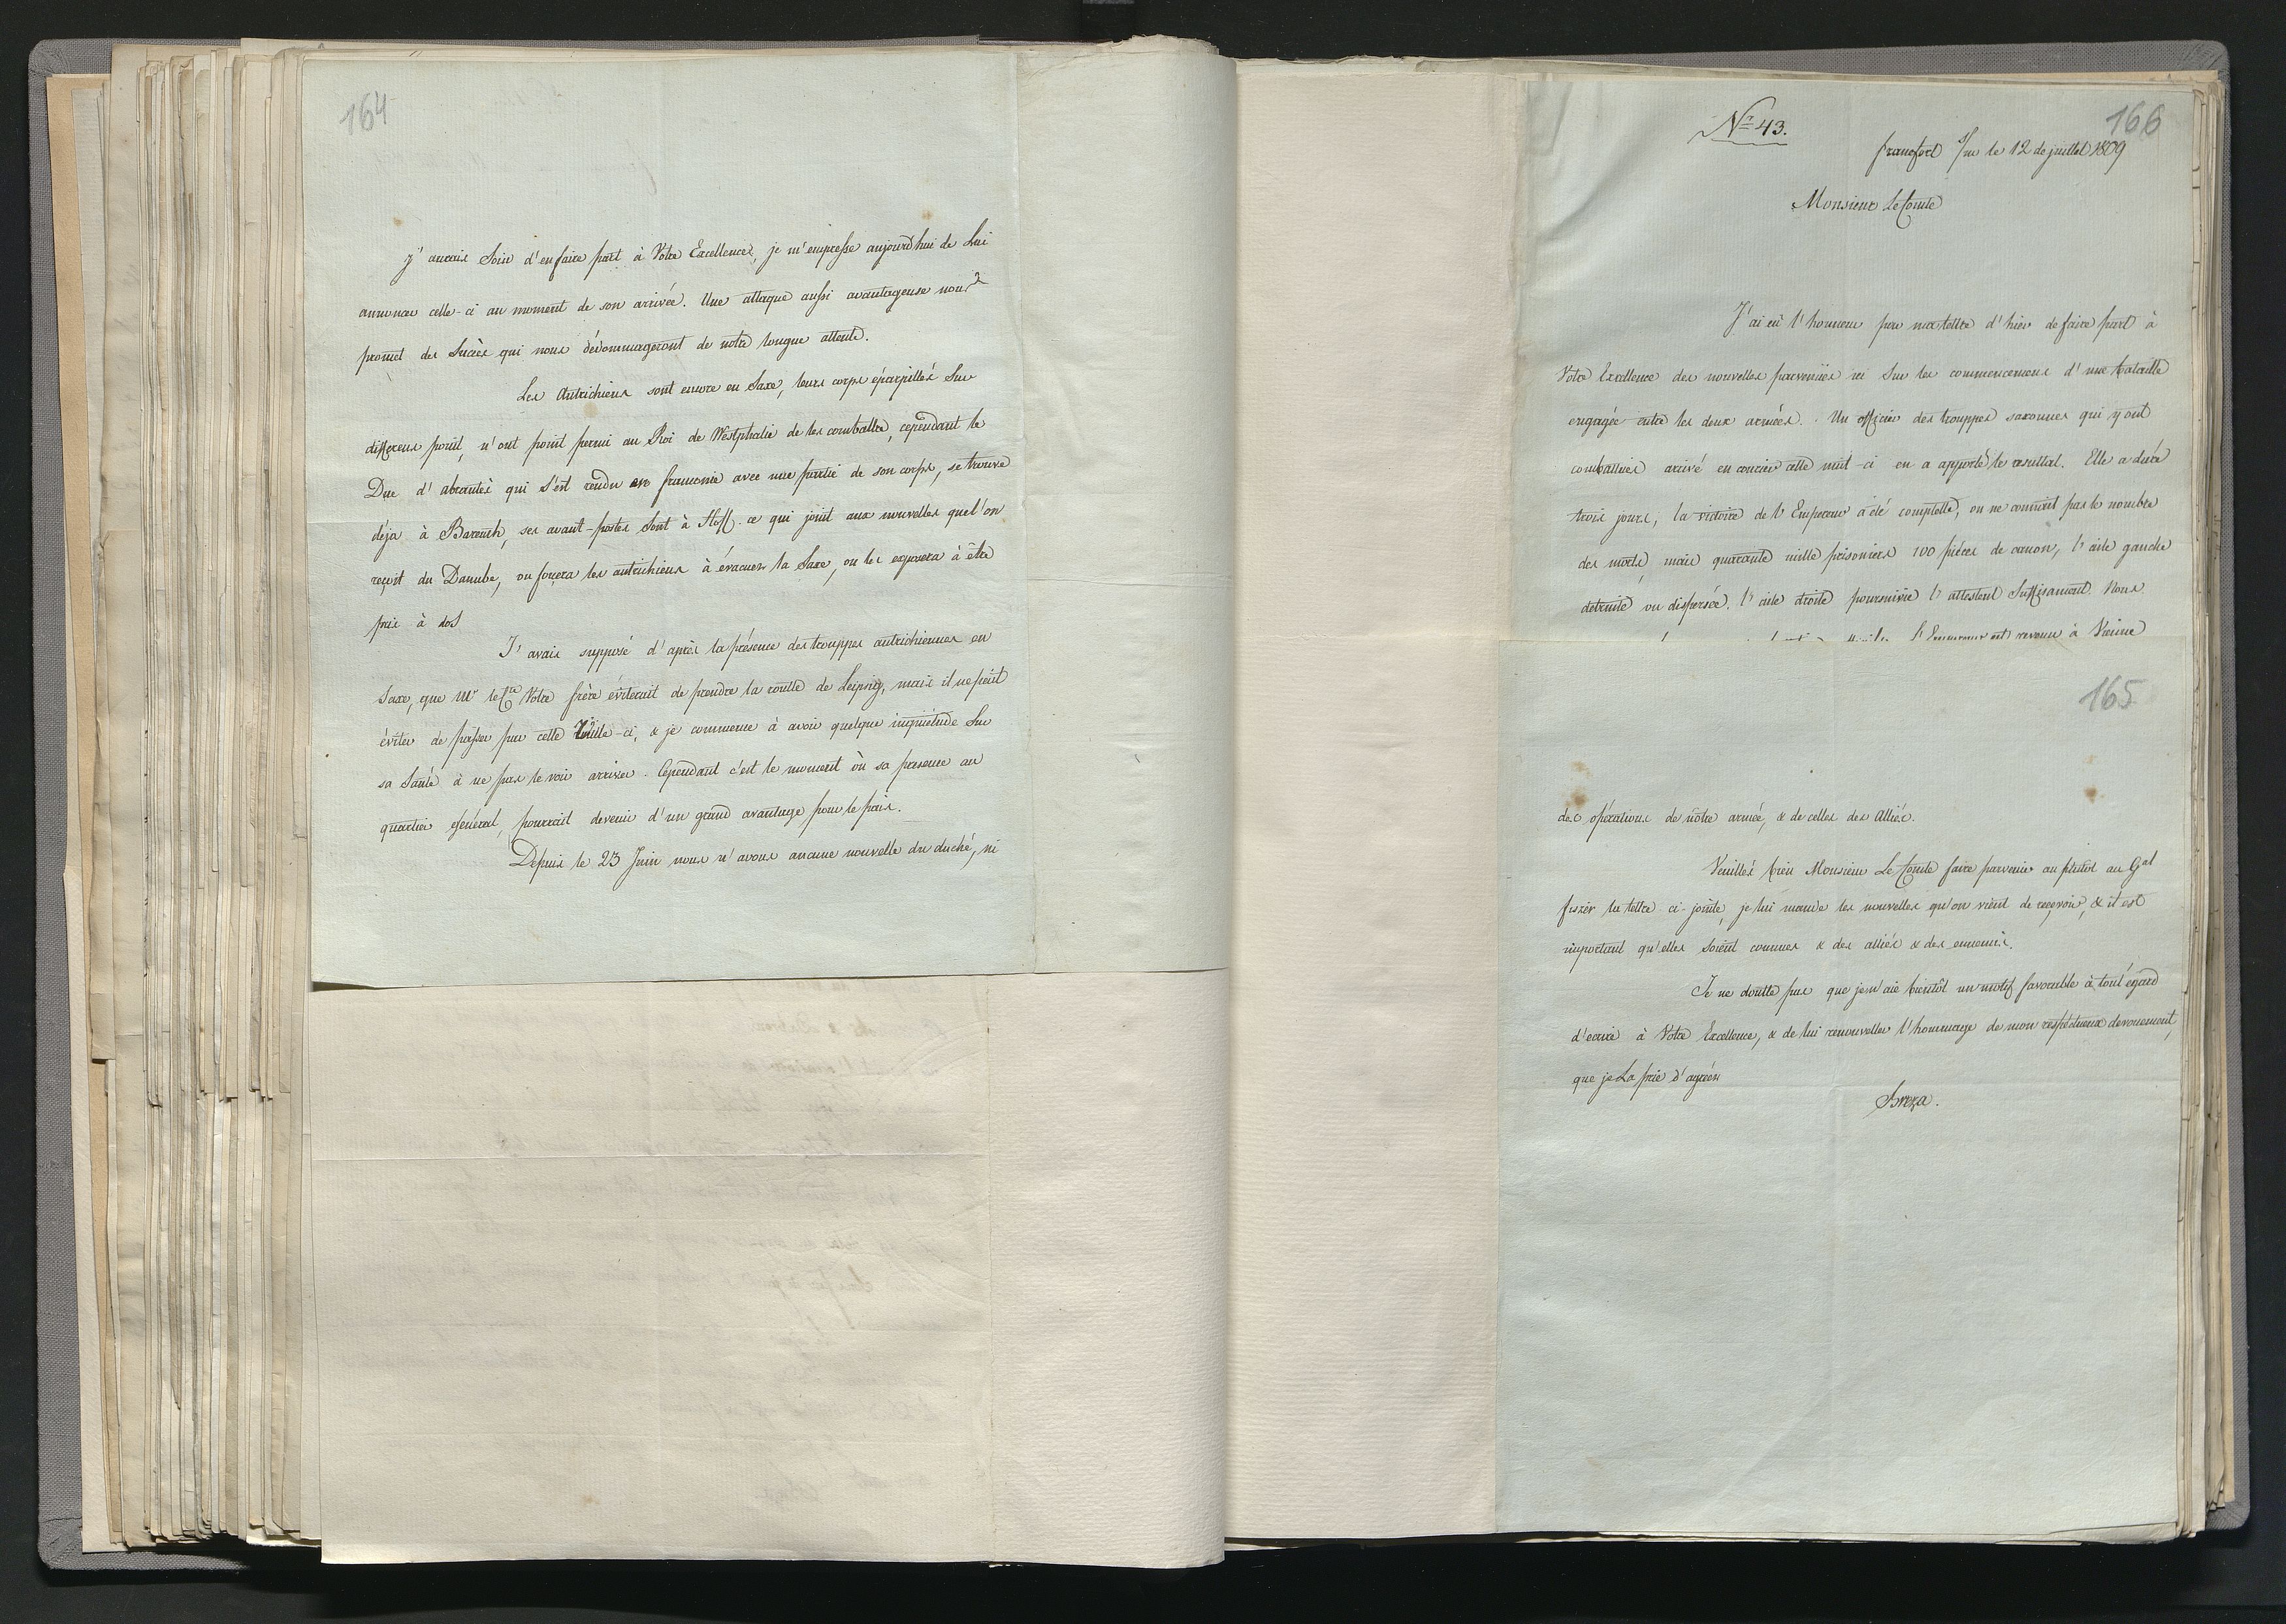 164
j'aurais Soin d'en faire part à Votre Excellence, je m'empresse aujourdhui de Lui
annoncer celle-ci au moment de son arrivée. Une attaque aussi avantageuse nous
promet des Succès qui nous dédommageront de notre longue attente.
Les Autrichiens sont encore en Saxe, leurs corps éparpillés Sur
differens point, n'ont point permi au Roi de Westphalie de les combattre, cependant le
Duc d'abrantès qui s'est rendu en franconie avec une partie de son corps, se trouve
déja à Bareuth, ses avant-postes sont à Hoff. ce qui joint aux nouvelles que l'on
reçoit du Danube, ou forçera les autrichiens à évacuer la Saxe, ou les exposera à être
pris à dos
J'avais supposé d'après la présence des trouppes autrichiennes en
Saxe, que Mr le Cte Votre frère éviterait de prendre la routte de Leipsig, mais il ne peut
éviter de passer par cette Ville-ci, & je commence à avoir quelque inquiétude Sur
sa Santé à ne pas le voir arriver. Cependant c'est le moment où sa presence au
quartier général, pourrait devenir d'un grand avantage pour le païs.
Depuis le 23 Juin nous n'avons aucune nouvelle du duché, ni
166
No 43.
francfort s/m le 12 de juillet 1809
Monsieur Le Comte
J'ai eû l'honneur par ma lettre d'hier de faire part à
Votre Excellence des nouvelles parvenües ici Sur les commencemens d'une bataille
engagée entre les deux armées. Un officier des trouppes saxonnes qui y ont
combattues arrivé en courier cette nuit-ci en a apporté le resultat. Elle a durée
trois jours, la victoire de l'Empereur a été complette, on ne connait pas le nombre
des morts, mais quarante mille prisoniers 100 pièces de canon, l'aile gauche
detruite ou dispersée, l'aile droite poursuivie l'attestent Suffisament. Nous
l'Empereur est revenu à Vienne
165
des opérations de nôtre armée, & de celles des Alliés.
Veuillés bien Monsieur Le Comte faire parvenir au plutôt au Gal
fiszer la lettre ci-jointe, je lui mande les nouvelles qu'on vient de reçevoir, & il est
important qu'elles soient connues & des alliés & des ennemis.
Je ne doutte pas que je n'aie bientôt un motif favorable à tout égard
d'ecrire à Votre Excellence, & de lui renouveller l'hommage de mon respectueux devouement,
que je La prie d'agréer
Breza.